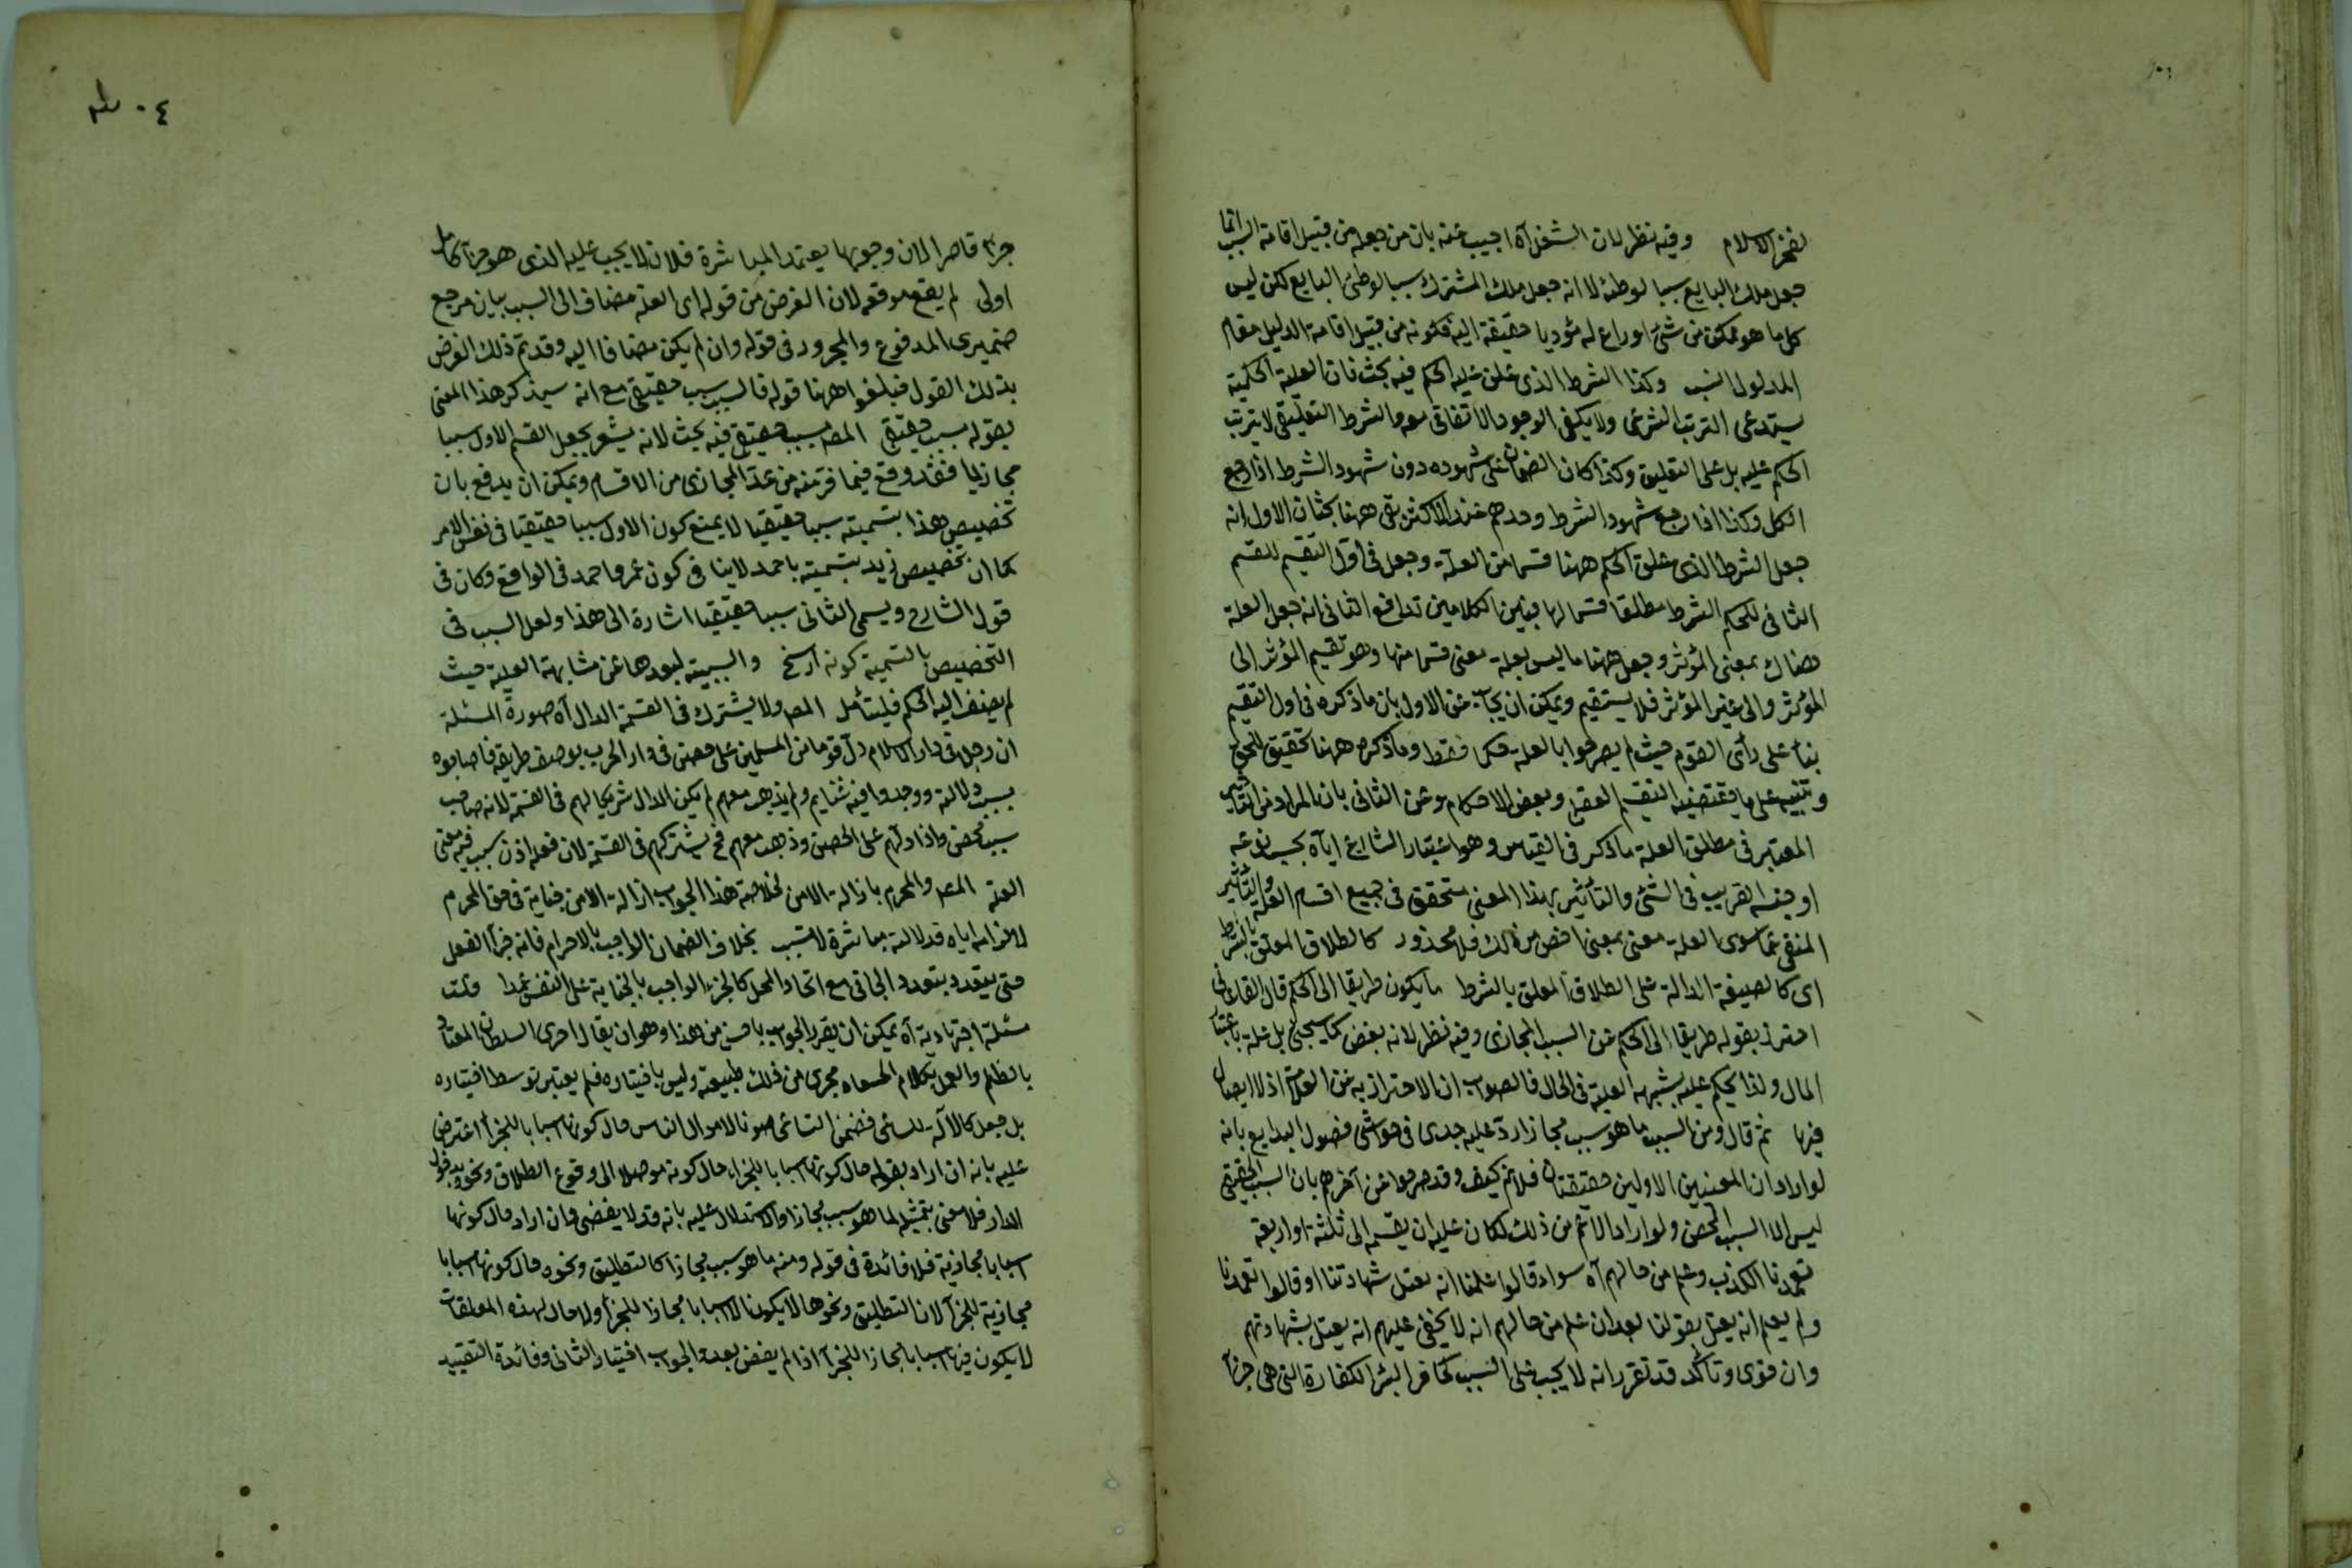 لفخر الاسلام وفيه نظر لان الشغل آه اجيب عنه بان من جعله من قبيل اقامة السبب انما
جعل ملك البايع سببا لوطئه لا انه جعل ملك المشترى سببا لوطئ البايع لكن ليس
كل ما هو ممكن من شئ او داع له مؤديا حقيقة اليه فكونه من قبيل اقامة الدليل مقام
المدلول انسب وكذا الشرط الذى علق عليه الحكم فيه بحث فان العلية الحكمية
يستدعى الترتب الشرعى ولا يكفى الوجود الاتفاقى معه والشرط التعليقى لا يترتب
الحكم عليه بل على التعليق وكذا كان الضمان على شهوده دون شهود الشرط اذا رجع
الكل وكذا اذا رجع شهود الشرط وحدهم عند الاكثر بقى ههنا بحثان الاول انه
جعل الشرط الذى علق الحكم ههنا قسما من العلة وجعل فى اول التقسيم للقسم
الثانى للحكم الشرط مطلقا قسما لها فبين الكلامين تدافع الثانى انه جعل العلة
هناك بمعنى المؤثر وجعل ههنا ما ليس بعلة معنى قسما منها وهو تقسيم المؤثر الى
المؤثر والى غير المؤثر فلا يستقيم ويمكن ان يجاب عن الاول بان ما ذكره فى اول التقسيم
بناء على رأى القوم حيث لم يصرحوا بالعلة حكما فقط وما ذكره ههنا تحقيق للحق
وتنبيه على ما يقتضيه التقسيم العقلى وبعض الاحكام وعن الثانى بان المراد من التأثير
المعتبر فى مطلق العلة ما ذكر فى القياس وهو اعتبار الشارع اياه بحسب نوعه
او جنسه القريب فى الشئ والتأثير بهذا المعنى متحقق فى جميع اقسام العلة والتأثير
المنفى عما سوى العلة معنى بمعنى اخص من ذلك فلا محذور كالطلاق المعلق بالشرط
اى كالصيغة الدالة على الطلاق المعلق بالشرط ما يكون طريقا الى الحكم قال القاءنى
احترز بقوله طريقا الى الحكم عن السبب المجازى وفيه نظر لانه بعض كما سيجئ بل علة باعتبار
المال ولذا يحكم عليه بشبهة العلية فى الحال فالصواب ان الاحتراز به عن العلامة اذ لا ايصال
فيها ثم قال ومن السبب ما هو سبب مجازا رد عليه جدى فى حواشى فصول البدايع بانه
لو اراد ان المعنيين الاولين حقيقتان فلا ثم كيف وقد صرحوا عن آخرهم بان السبب الحقيقى
ليس الا السبب المحض ولو اراد الاعم من ذلك لكان عليه ان يقسمه الى ثلثة او اربعة
تعمدنا الكذب وعلم من حالهم آه سواء قالوا علمنا انه يقتل شهادتنا او قالوا تعمدنا
ولم يعلم انه يقتل بقولنا بعد ان علم من حالهم انه لا يخفى عليهم انه يقتل بشهادتهم
وان قوى وتأكد قد تقرر انه لا يجب على المسبب كحافر البئر الكفارة التى هى جزاء
٠٤
جزاء قاصرا لان وجوبها يعتمد المباشرة فلان لا يجب عليه الذى هو جزاء كامل
اولى لم يقع موقعه لان الغرض من قوله اى العلة مضاف الى السبب بيان مرجع
ضميرى المرفوع والمجرور فى قوله وان لم يكن مضافا اليه وقد تم ذلك الغرض
بذلك القول فيلغوا ههنا قوله فالسبب سبب حقيقى مع انه سيذكر هذا المعنى
بقوله سبب حقيقى المص سبب حقيقى فيه بحث لانه يشعر بجعل القسم الاول سببا
مجازيا فقد وقع فيما فر منه من عد المجازى من الاقسام ويمكن ان يدفع بان
تخصيص هذا بتسميته سببا حقيقيا لا يمنع كون الاول سببا حقيقيا فى نفس الامر
كما ان تخصيص زيد بتسميته باحمد لا ينافى كون عمرو احمد فى الواقع وكان فى
قول الشارح ويسمى الثانى سببا حقيقيا اشارة الى هذا ولعل السبب فى
التخصيص بالتسمية كونه ارسخ والسببية لبعدها عن مشابهة العلية حيث
لم يضف اليه الحكم فليتأمل المص ولا يشترك فى القسمة الدال آه صورة المسئلة
ان رجلا فى دار الاسلام دل قوما من المسلمين على حصن فى دار الحرب بوصف طريقه فاصابوه
بسبب دلالته ووجدوا فيه غنايم ولم يذهب معهم لم يكن الدال شريكا لهم فى القسمة لانه صاحب
سبب محض واذا دلهم على الحصن وذهب معهم فح يشتركهم فى القسمة لان فعله اذن سبب فيه معنى
العلة المص والمحرم بازالة الامن خلاصة هذا الجواب ازالة الامن جناية فى حق المحرم
لالتزامه اياه فدلالته مباشرة لا تسبب بخلاف الضمان الواجب بالاحرام فانه جزاء الفعل
حتى يتعدد بتعدد الجانى مع اتحاد المحل كالجزء الواجب بالجناية على النفس عمدا وكنت
مسئلة اجتهادية آه يمكن ان يقرر الجواب باحسن من هذا وهو ان يقال اجرى السلطان المعتاد
بالظلم والعمل بكلام السعاه مجرى من ذلك طبيعته وليس باختياره فلم يعتبر توسط اختياره
بل جعل كالآلة للساعى فضمن الساعى صونا لاموال الناس حال كونها اسبابا للجزاء اعترض
عليه بانه ان اراد بقوله حال كونها اسبابا للجزاء حال كونه موصلا الى وقوع الطلاق ونحوه بدخول
الدار فلا معنى بتمثيله لما هو سبب مجازا والاستدلال عليه بانه قد لا يفضى وان اراد حال كونها
اسبابا مجازية فلا فائدة فى قوله ومنه ما هو سبب مجازا كالتطليق ونحوه حال كونها اسبابا
مجازية للجزاء لان التطليق ونحوها لا يكون الا اسبابا مجازا للجزاء ولا حال لهذه المعلقات
لا يكون فيها اسبابا مجازا للجزاء اذا لم يفض بعد والجواب اختيار الثانى وفائدة التقييد